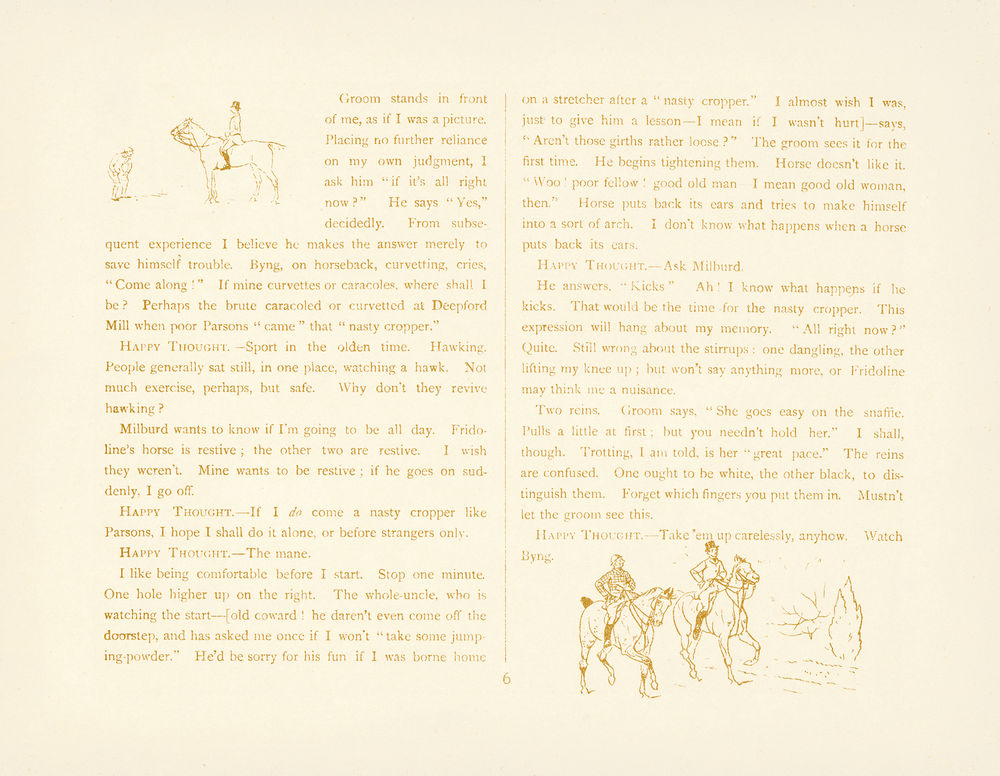 Groom stands in front
of me, as if I was a picture.
Placing no further reliance
on my own judgment, I
ask him "if it's all right
now?" He says "Yes,"
decidedly. From subse-
quent experience I believe he makes the answer merely to
save himself trouble. Byng, on horseback, curvetting, cries,
"Come along!" If mine curvettes or caracoles, where shall I
be? Perhaps the brute caracoled or curvetted at Deepford
Mill when poor Parsons "came" that "nasty cropper."
HAPPY THOUGHT.—Sport in the olden time. Hawking.
People generally sat still, in one place, watching a hawk. Not
much exercise, perhaps, but safe. Why don't they revive
hawking?
Milburd wants to know if I'm going to be all day. Frido-
line's horse is restive; the other two are restive. I wish
they weren't. Mine wants to be restive; if he goes on sud-
denly, I go off.
HAPPY THOUGHT.—If I do come a nasty cropper like
Parsons, I hope I shall do it alone, or before strangers only.
HAPPY THOUGHT.—The mane.
I like being comfortable before I start. Stop one minute.
One hole higher up on the right. The whole-uncle, who is
watching the start—[old coward! he daren't even come off the
doorstep, and has asked me once if I won't "take some jump-
ing-powder." He'd be sorry for his fun if I was borne home
on a stretcher after a "nasty cropper." I almost wish I was,
just to give him a lesson—I mean if I wasn't hurt]—says,
"Aren't those girths rather loose?" The groom sees it for the
first time. He begins tightening them. Horse doesn't like it.
"Woo! poor fellow! good old man—I mean good old woman,
then." Horse puts back its ears and tries to make himself
into a sort of arch. I don't know what happens when a horse
puts back its ears.
HAPPY THOUGHT.—Ask Milburd.
He answers, "Kicks" Ah! I know what happens if he
kicks. That would be the time for the nasty cropper. This
expression will hang about my memory. "All right now?"
Quite. Still wrong about the stirrups: one dangling, the other
lifting my knee up; but won't say anything more, or Fridoline
may think me a nuisance.
Two reins. Groom says, "She goes easy on the snaffle.
Pulls a little at first; but you needn't hold her." I shall,
though. Trotting, I am told, is her "great pace." The reins
are confused. One ought to be white, the other black, to dis-
tinguish them. Forget which fingers you put them in. Mustn't
let the groom see this.
HAPPY THOUGHT.—Take 'em up carelessly, anyhow. Watch
Byng.
6